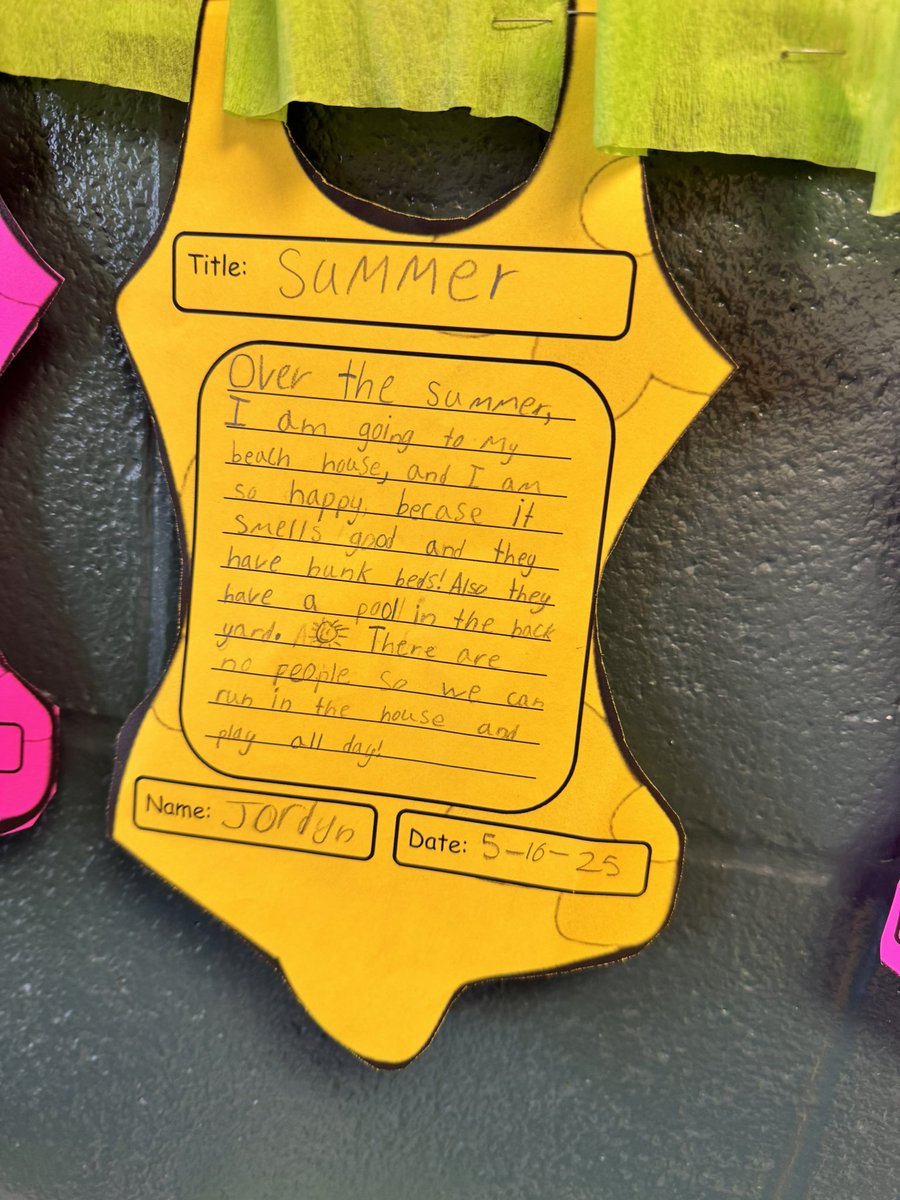 Title: Summer
Over the summer,
I am going to my
beach house, and I am
so happy, becase it
smells good and they
have bunk beds! Also they
have a pool in the back
yard. There are
no people so we can
run in the house and
play all day!
Name: Jordyn
Date: 5-16-25